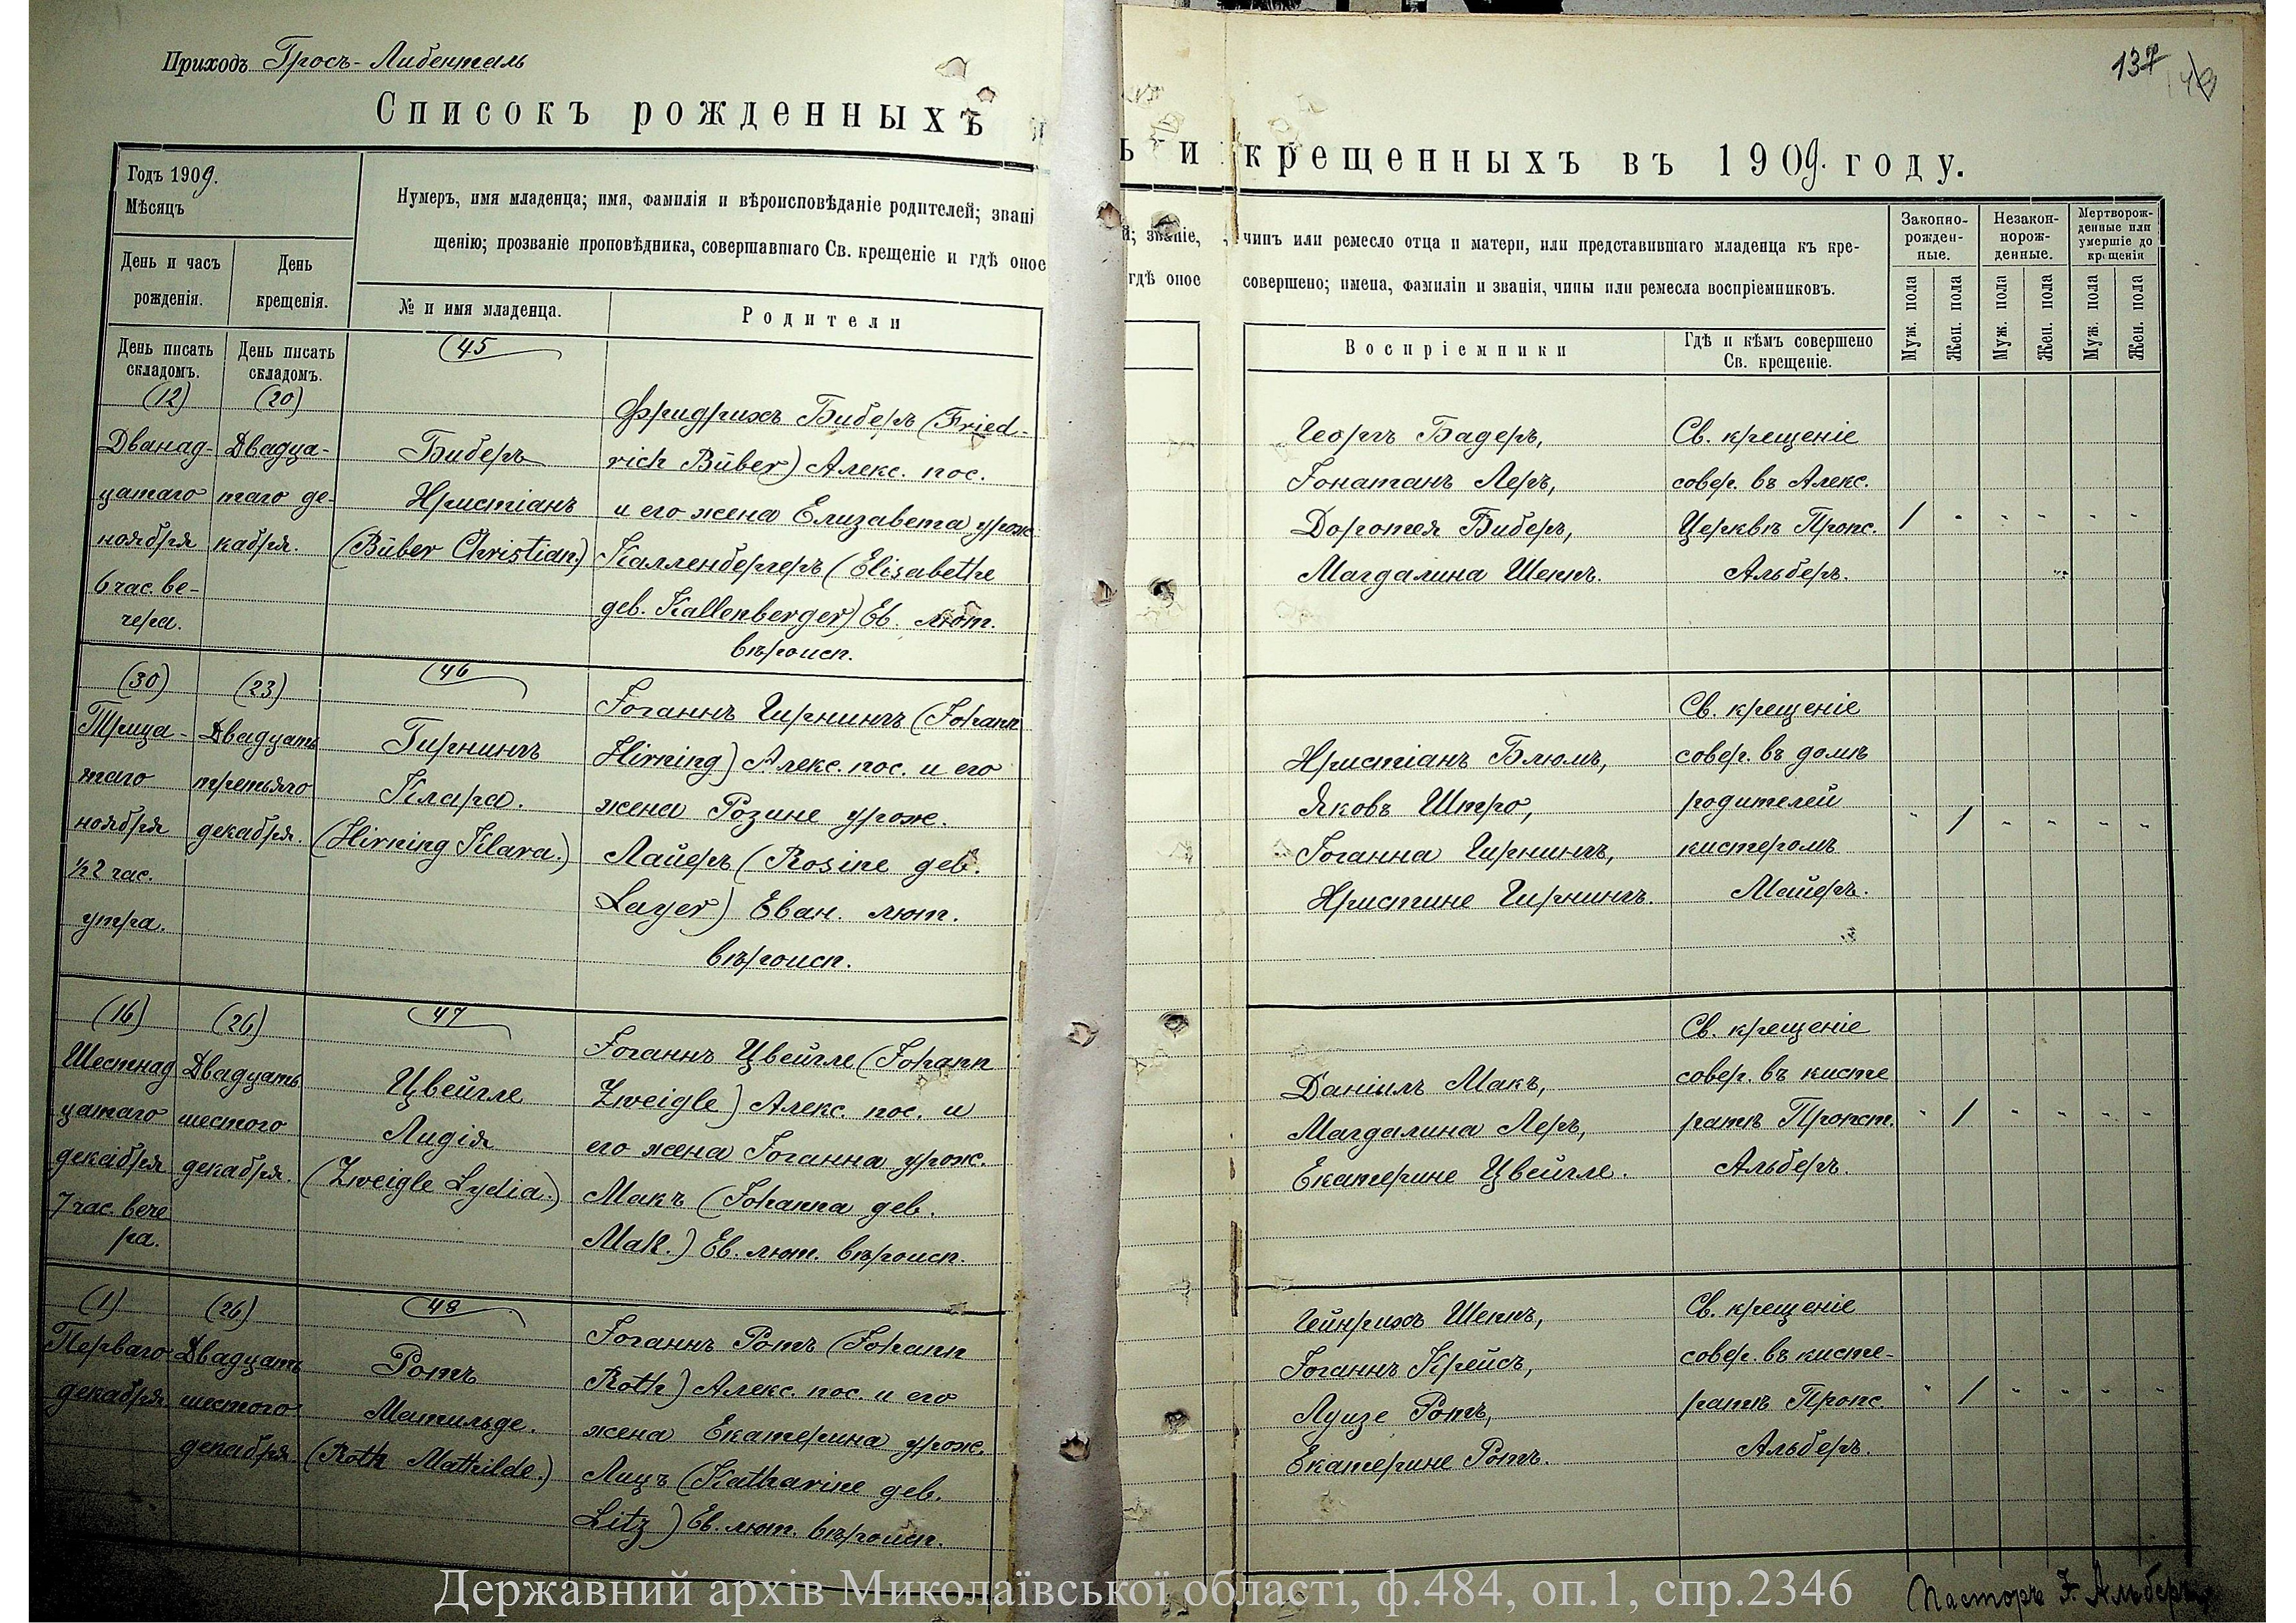 Приходъ Гросъ-Либенталь
137
Списокъ рожденныхъ
ъ и крещенныхъ въ 1909. году.
Годъ 1909.
Мѣсяцъ
День и часъ рожденія.
День крещенія.
Нумеръ, имя младенца; имя, фамилія и вѣроисповѣданіе родителей; звані
щенію; прозваніе проповѣдника, совершавшаго Св. крещеніе и гдѣ оное
№ и имя младенца.
Родители
й; званіе, чинъ или ремесло отца и матери, или представившаго младенца къ кре-
гдѣ оное совершено; имена, фамиліи и званія, чины или ремесла воспріемниковъ.
Воспріемники
Гдѣ и кѣмъ совершено
Св. крещеніе.
Законно-
рожден-
ные.
Незакон-
норож-
денные.
Мертворож-
денные или
умершіе до
крещенія
Муж. пола
Жен. пола
Муж. пола
Жен. пола
Муж. пола
Жен. пола
День писать
складомъ.
День писать
складомъ.
(12)
Дванад-
цатаго
ноября
6 час. ве-
чера.
(20)
Двадца-
таго де-
кабря.
45
Биберъ
Христіанъ
(Büber Christian.)
Фридрихъ Биберъ (Fried-
rich Büber) Алекс. пос.
и его жена Елизавета урож.
Калленбергеръ (Elisabethe
geb. Kallenberger) Ев. лют.
вѣроисп.
Георгъ Бадеръ,
Іонатанъ Леръ,
Доротея Биберъ,
Магдалина Шеппъ.
Св. крещеніе
совер. въ Алекс.
Церквѣ Пропс.
Альберъ.
1 - - - - -
(30)
Трица-
таго
ноября
½2 час.
утра.
(23)
Двадцать
третьяго
декабря.
46
Гирнингъ
Клара.
(Hirning Klara.)
Іоганнъ Гирнингъ (Johann
Hirning) Алекс. пос. и его
жена Розине урож.
Лайеръ (Rosine geb.
Layer) Еван. лют.
вѣроисп.
Христіанъ Блюмъ,
Яковъ Штро,
Іоганна Гирнингъ,
Христине Гирнингъ.
Св. крещеніе
совер. въ домѣ
родителей
кистеромъ
Майеръ.
- 1 - - - -
(16)
Шестнад
цатаго
декабря
7 час. вече
ра.
(26)
Двадцать
шестого
декабря.
47
Цвейгле
Лидія
(Zweigle Lydia.)
Іоганнъ Цвейгле (Johann
Zweigle) Алекс. пос. и
его жена Іоганна урож.
Макъ (Johanna geb.
Mak.) Ев. лют. вѣроисп.
Даніилъ Макъ,
Магдалина Леръ,
Екатерине Цвейгле.
Св. крещеніе
совер. въ кисте
ратѣ Пропст.
Альберъ.
- 1 - - - -
(1)
Перваго
декабря
(26)
Двадцать
шестого
декабря
48
Ротъ
Матильде.
(Roth Mathilde.)
Іоганнъ Ротъ (Johann
Roth) Алекс. пос. и его
жена Екатерина урож.
Лицъ (Katharine geb.
Litz) Ев. лют. вѣроисп.
Гейнрихъ Шеппъ,
Іоганнъ Крейсъ,
Луизе Ротъ,
Екатерине Ротъ.
Св. крещеніе
совер. въ кисте-
ратѣ Пропс.
Альберъ.
- 1 - - - -
Державний архів Миколаївської області, ф.484, оп.1, спр.2346
Пасторъ Г. Альберъ